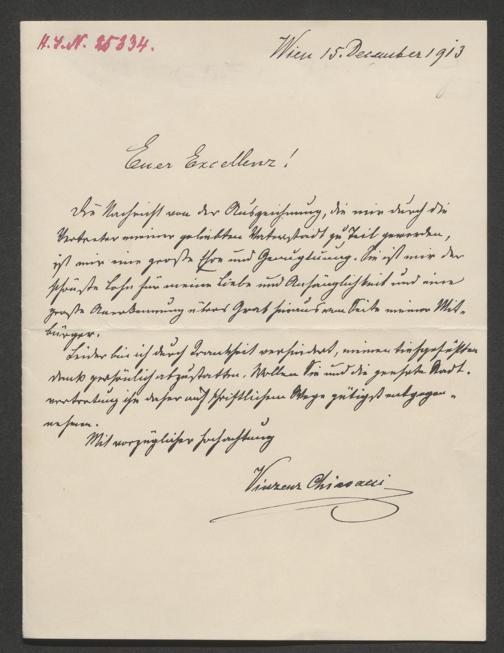 H.I.N. 25334.
Wien 15. December 1913
Euer Excellenz!
Die Nachricht von der Auszeichnung, die mir durch die
Vertreter meiner geliebten Vaterstadt zu Teil geworden,
ist mir eine große Ehre und Genugtuung. Sie ist mir der
schönste Lohn für meine Liebe und Anhänglichkeit und eine
große Anerkennung übers Grab hinaus von Seite meiner Mit-
bürger.
Leider bin ich durch Krankheit verhindert, meinen tiefgefühlten
Dank persönlich abzustatten. Wollen Sie und die geehrte Stadt-
vertretung ihn daher auf schriftlichem Wege gütigst entgegen-
nehmen.
Mit vorzüglicher Hochachtung
Vinzenz Chiavacci